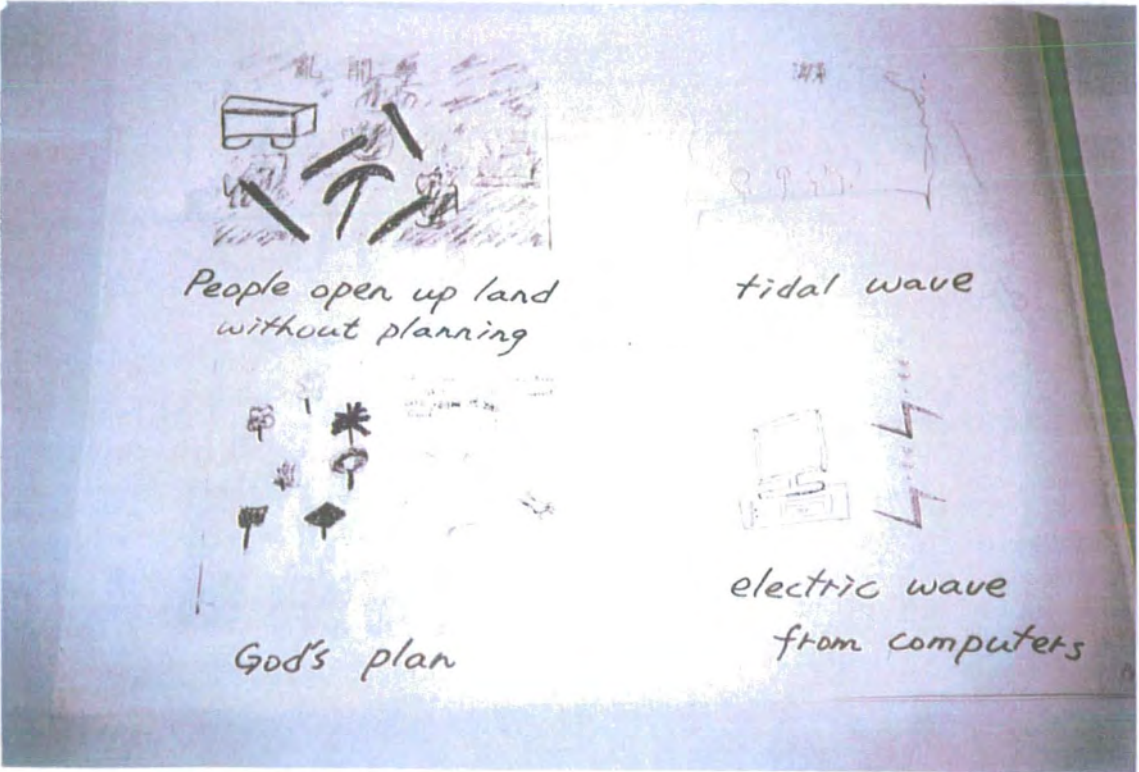 亂開墾
海嘯
People open up land
without planning
tidal wave
God's plan
electric wave
from computers